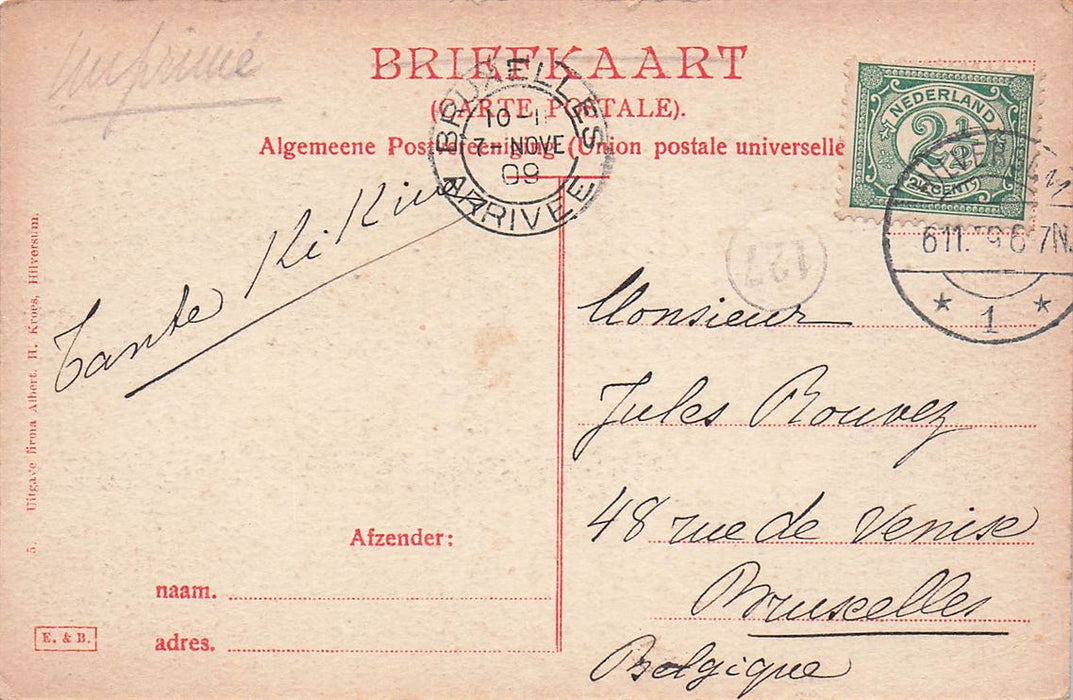 Imprimé
BRIEFKAART
(CARTE POSTALE).
Algemeene Postvereeniging (Union postale universelle
BRUXELLES
10-1
7-NOVE
09
ARRIVEE
NEDERLAND
2½
2½ CENT
VER
6 11. 9 6-7N.
1
127
Tante Kiki
Monsieur
Jules Rouvez
48 rue de Venise
Bruxelles
Belgique
Afzender:
naam.
adres.
E. & B.
5. Uitgave firma Albert. H. Kroes, Hilversum.